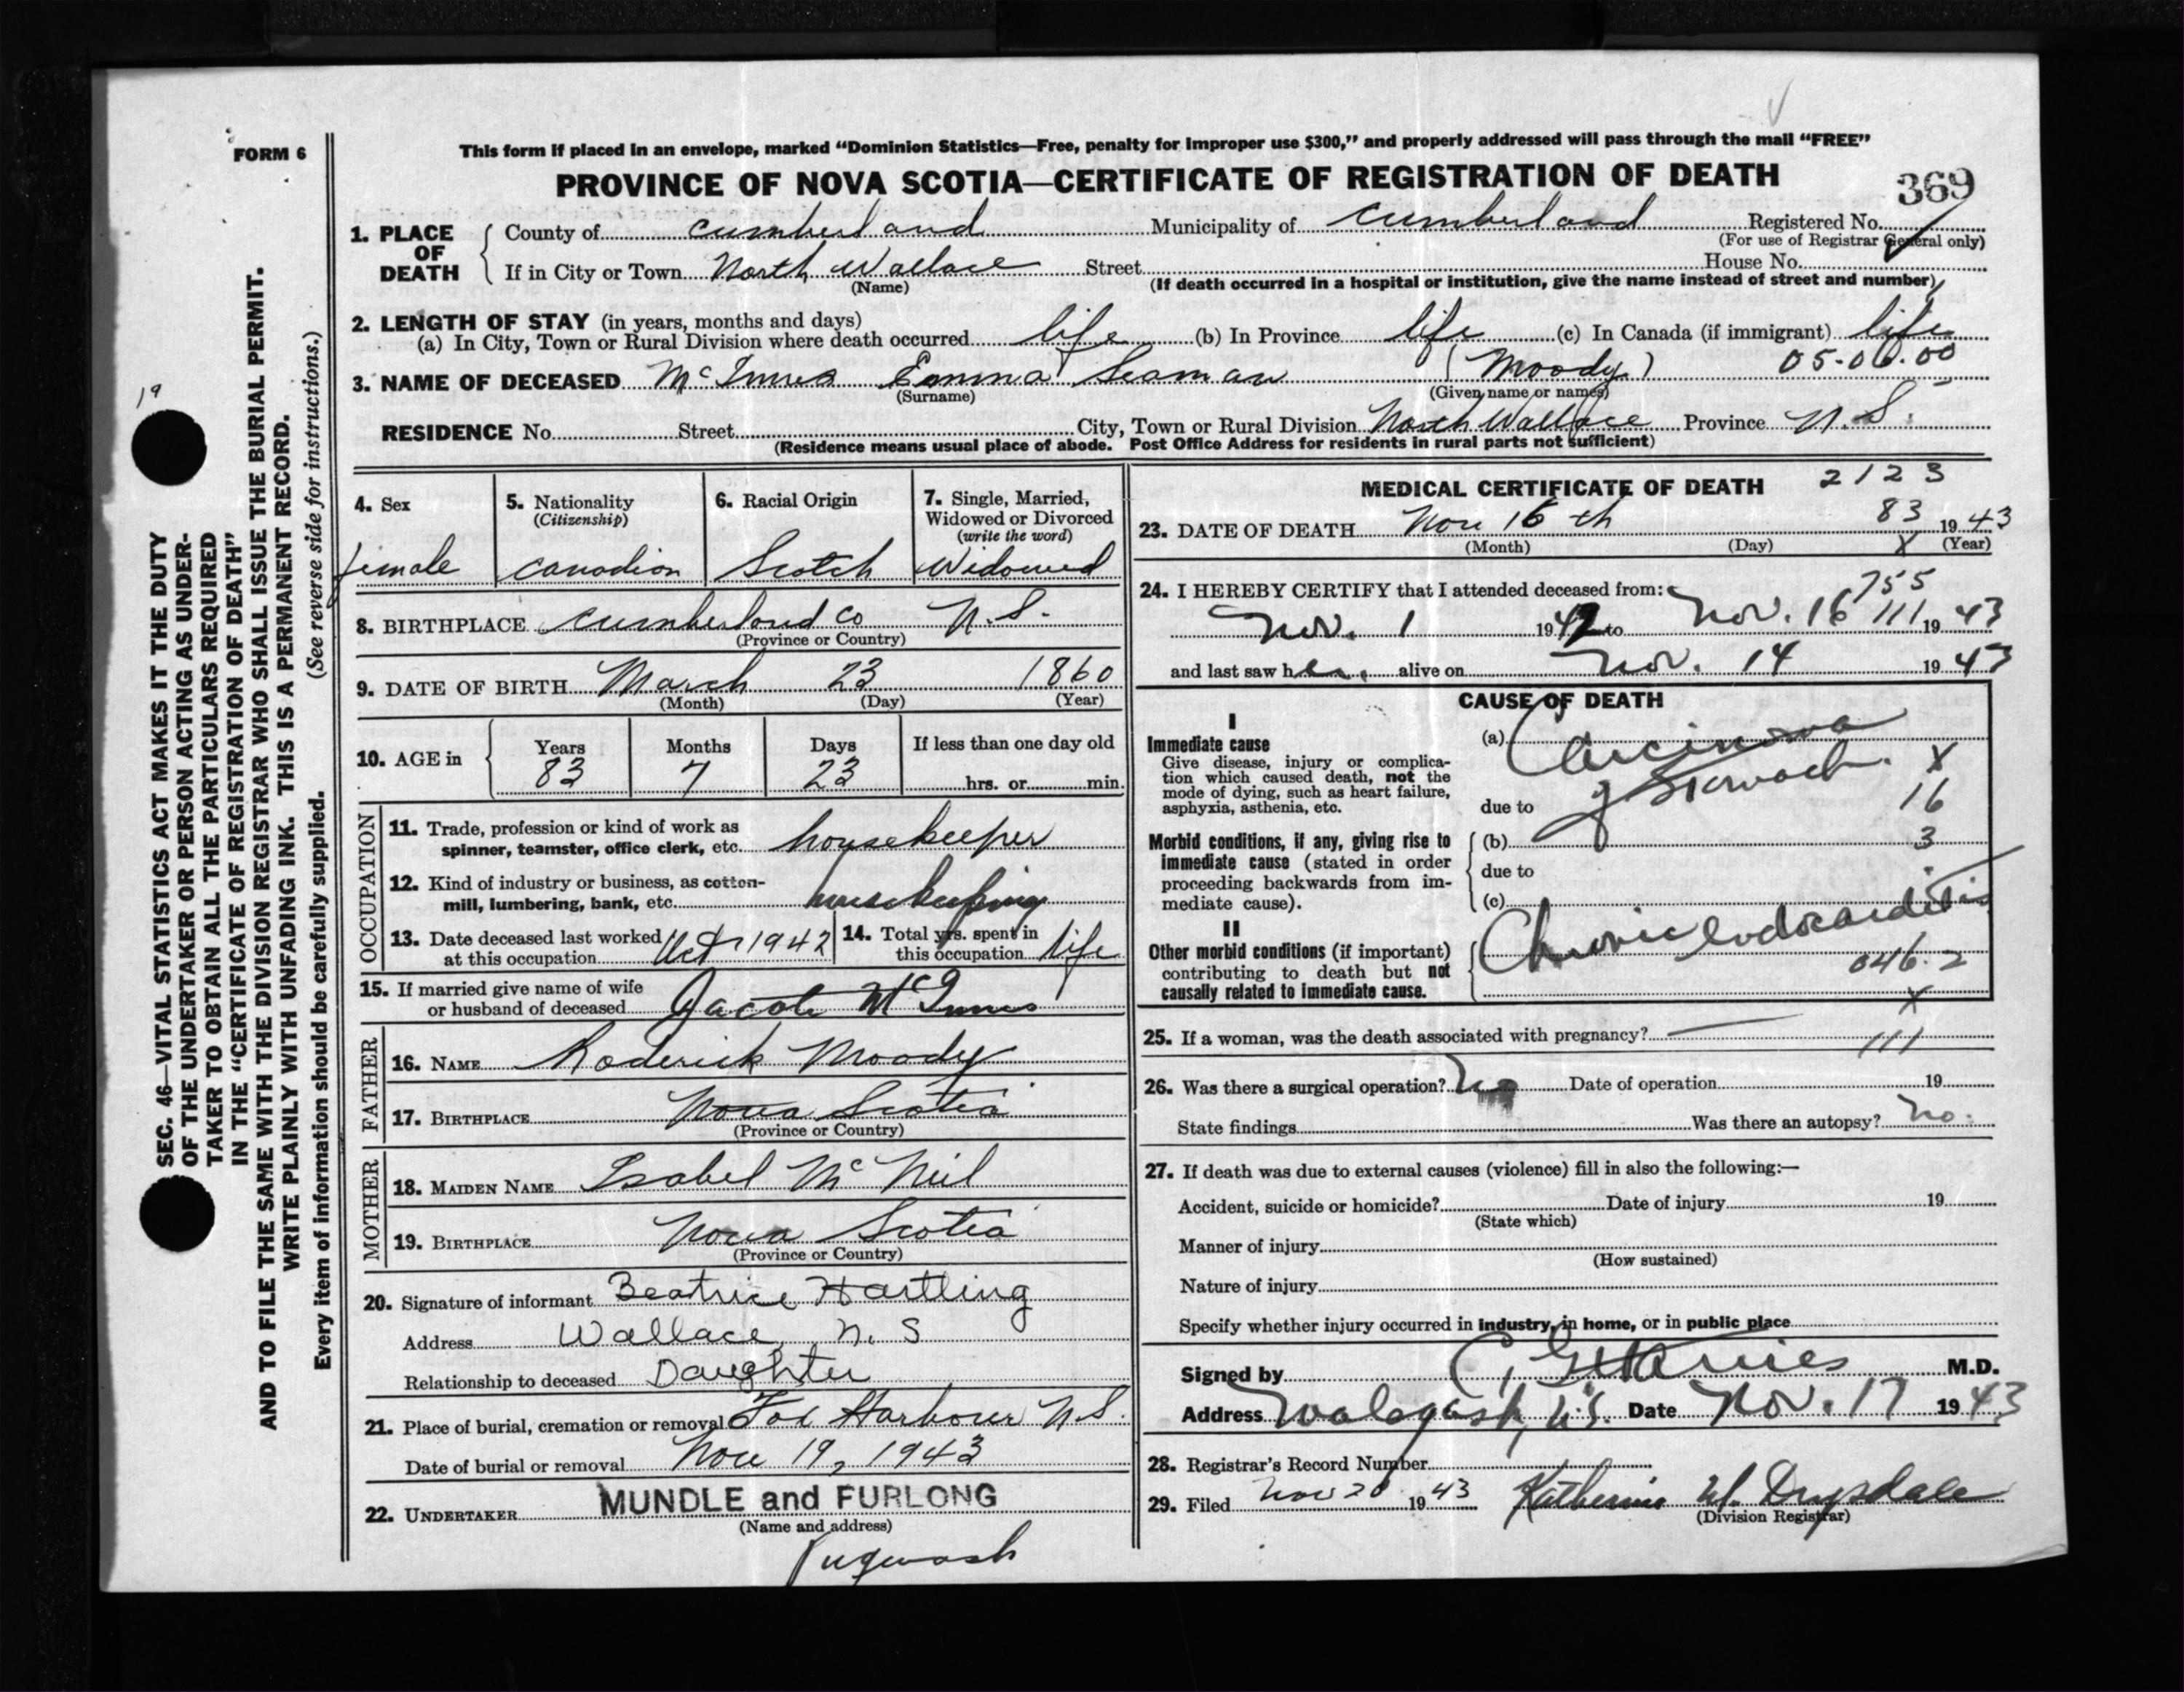 FORM 6
This form if placed in an envelope, marked "Dominion Statistics—Free, penalty for improper use $300," and properly addressed will pass through the mail "FREE"
PROVINCE OF NOVA SCOTIA—CERTIFICATE OF REGISTRATION OF DEATH
369
1. PLACE OF DEATH
County of Cumberland Municipality of Cumberland Registered No.
(For use of Registrar General only)
If in City or Town North Wallace Street House No.
(Name) (If death occurred in a hospital or institution, give the name instead of street and number)
2. LENGTH OF STAY (in years, months and days)
(a) In City, Town or Rural Division where death occurred life (b) In Province life (c) In Canada (if immigrant) life
3. NAME OF DECEASED McInnes Emma Seaman (Moody) 05-06.00
(Surname) (Given name or names)
RESIDENCE No. Street City, Town or Rural Division North Wallace Province N.S.
(Residence means usual place of abode. Post Office Address for residents in rural parts not sufficient)
4. Sex
female
5. Nationality
(Citizenship)
Canadian
6. Racial Origin
Scotch
7. Single, Married,
Widowed or Divorced
(write the word)
Widowed
8. BIRTHPLACE Cumberland Co N.S.
(Province or Country)
9. DATE OF BIRTH March 23 1860
(Month) (Day) (Year)
10. AGE in
Years Months Days If less than one day old
83 7 23 hrs. or min.
OCCUPATION
11. Trade, profession or kind of work as
spinner, teamster, office clerk, etc. housekeeper
12. Kind of industry or business, as cotton-
mill, lumbering, bank, etc. housekeeping
13. Date deceased last worked
at this occupation Oct 1942
14. Total yrs. spent in
this occupation life
15. If married give name of wife
or husband of deceased Jacob McInnes
FATHER
16. NAME Roderick Moody
17. BIRTHPLACE Nova Scotia
(Province or Country)
MOTHER
18. MAIDEN NAME Isabel McNeil
19. BIRTHPLACE Nova Scotia
(Province or Country)
20. Signature of informant Beatrice Hartling
Address Wallace, N. S
Relationship to deceased Daughter
21. Place of burial, cremation or removal Fox Harbour N.S.
Date of burial or removal Nov 19, 1943
22. UNDERTAKER MUNDLE and FURLONG
(Name and address)
Pugwash
MEDICAL CERTIFICATE OF DEATH 2123
23. DATE OF DEATH Nov 16 th 83 1943
(Month) (Day) X (Year)
24. I HEREBY CERTIFY that I attended deceased from: 755
Nov. 1 1942 to Nov. 16 111 1943
and last saw her alive on Nov. 14 1943
CAUSE OF DEATH
I
Immediate cause
Give disease, injury or complica-
tion which caused death, not the
mode of dying, such as heart failure,
asphyxia, asthenia, etc.
(a) Carcinoma
of Stomach. X
due to 16
Morbid conditions, if any, giving rise to
immediate cause (stated in order
proceeding backwards from im-
mediate cause).
(b) 3
due to
(c)
II
Other morbid conditions (if important)
contributing to death but not
causally related to immediate cause.
Chronic Endocarditis
046.2
X
25. If a woman, was the death associated with pregnancy? —
111
26. Was there a surgical operation? No Date of operation 19
State findings Was there an autopsy? No.
27. If death was due to external causes (violence) fill in also the following:—
Accident, suicide or homicide? Date of injury 19
(State which)
Manner of injury
(How sustained)
Nature of injury
Specify whether injury occurred in industry, in home, or in public place
Signed by M.D.
Address N.S. Date Nov. 17 1943
28. Registrar's Record Number
29. Filed Nov 20 1943 Katherine Drysdale
(Division Registrar)
19
SEC. 46—VITAL STATISTICS ACT MAKES IT THE DUTY
OF THE UNDERTAKER OR PERSON ACTING AS UNDER-
TAKER TO OBTAIN ALL THE PARTICULARS REQUIRED
IN THE "CERTIFICATE OF REGISTRATION OF DEATH"
AND TO FILE THE SAME WITH THE DIVISION REGISTRAR WHO SHALL ISSUE THE BURIAL PERMIT.
WRITE PLAINLY WITH UNFADING INK. THIS IS A PERMANENT RECORD.
Every item of information should be carefully supplied. (See reverse side for instructions.)